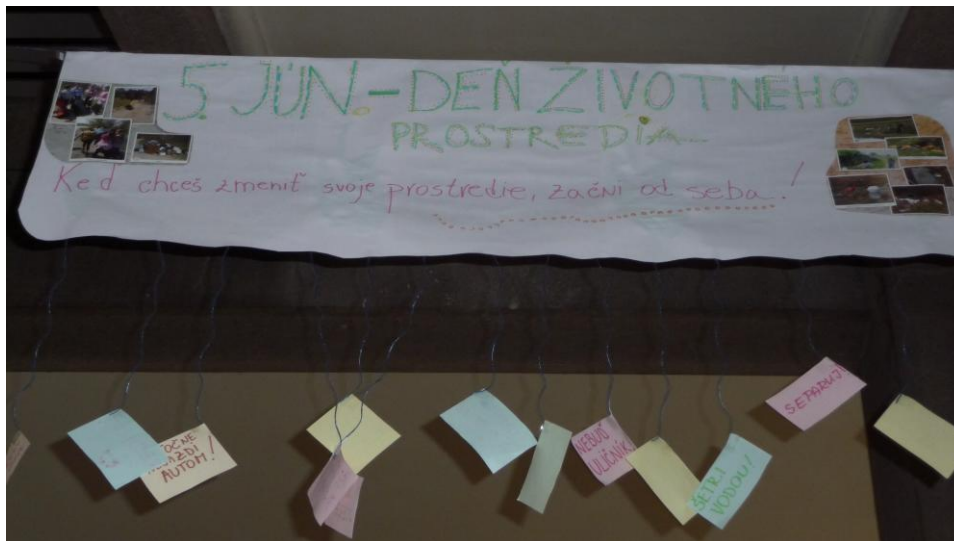 5. JÚN. - DEŇ ŽIVOTNÉHO
PROSTREDIA...
Keď chceš zmeniť svoje prostredie, začni od seba!
AUTOM!
NEBUĎ
ULIČNÍK
ŠETRI
VODOU!
SEPARUJ